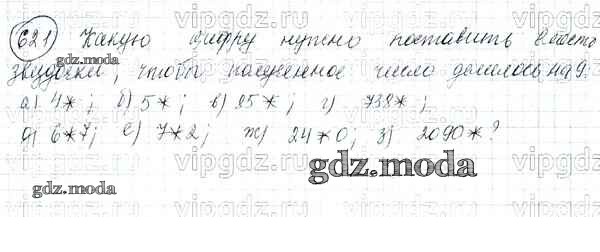 621 Какую цифру нужно поставить вместо
звездочки, чтобы полученное число делилось на 9:
а) 4*; б) 5*; в) 25*; г) 738*;
д) 6*7; е) 7*2; ж) 24*0; з) 2090*?
gdz.moda
gdz.moda
gdz.moda
vipgdz.ru